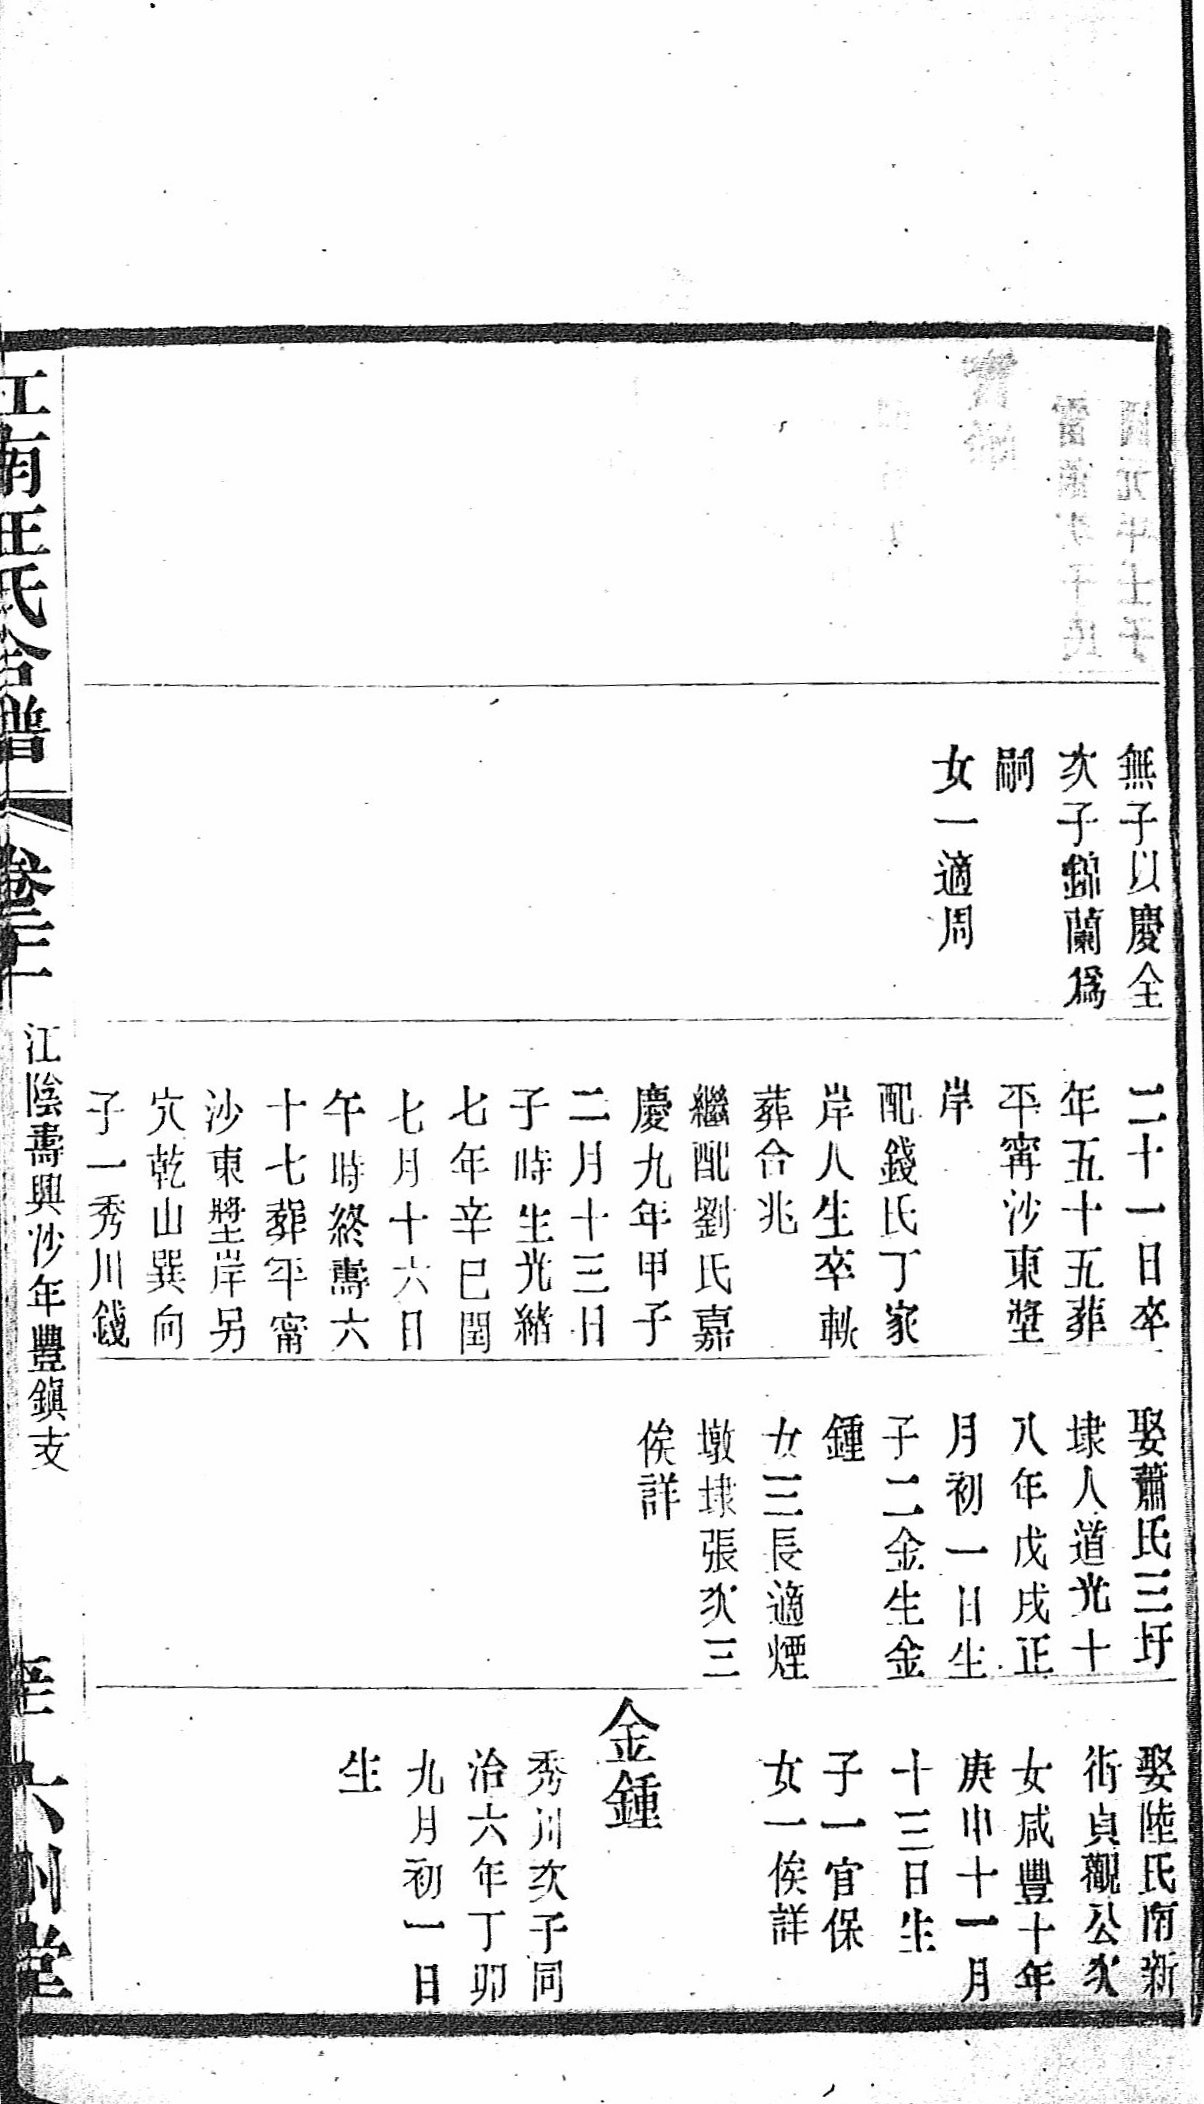 無子以慶全
次子錦蘭爲
嗣
女一適周
二十一日卒
年五十五葬
平甯沙東壂
岸
配錢氏丁家
岸人生卒軼
葬合兆
繼配劉氏嘉
慶九年甲子
二月十三日
子時生光緒
七年辛巳閏
七月十六日
午時終壽六
十七葬平甯
沙東壂岸另
穴乾山巽向
子一秀川錢
娶蕭氏三圩
埭人道光十
八年戊戌正
月初一日生
子二金生金
鍾
女三長適煙
墩埭張次三
俟詳
娶陸氏南新
街貞觀公次
女咸豐十年
庚申十一月
十三日生
子一官保
女一俟詳
金鍾
秀川次子同
治六年丁卯
九月初一日
生
江南汪氏合譜
卷三二
江陰壽興沙年豐鎮支
六州堂